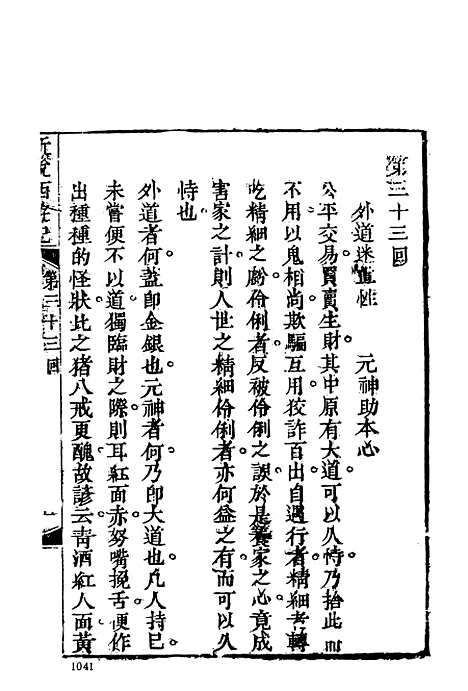 第三十三回
外道迷真性　元神助本心
公平交易買賣生財其中原有大道可以久恃乃捨此而
不用以鬼相尚欺騙互用狡詐百出自遇行者精細者轉
吃精細之虧伶俐者反被伶俐之誤於是養家之心竟成
害家之計則人世之精細伶俐者亦何益之有而可以久
恃也
外道者何蓋即金銀也元神者何乃即大道也凡人持已
未嘗便不以道獨臨財之際則耳紅面赤努嘴挽舌便作
出種種的怪狀比之猪八戒更醜故諺云靑酒紅人面黃
新說西遊記　第三十三回　一
1041